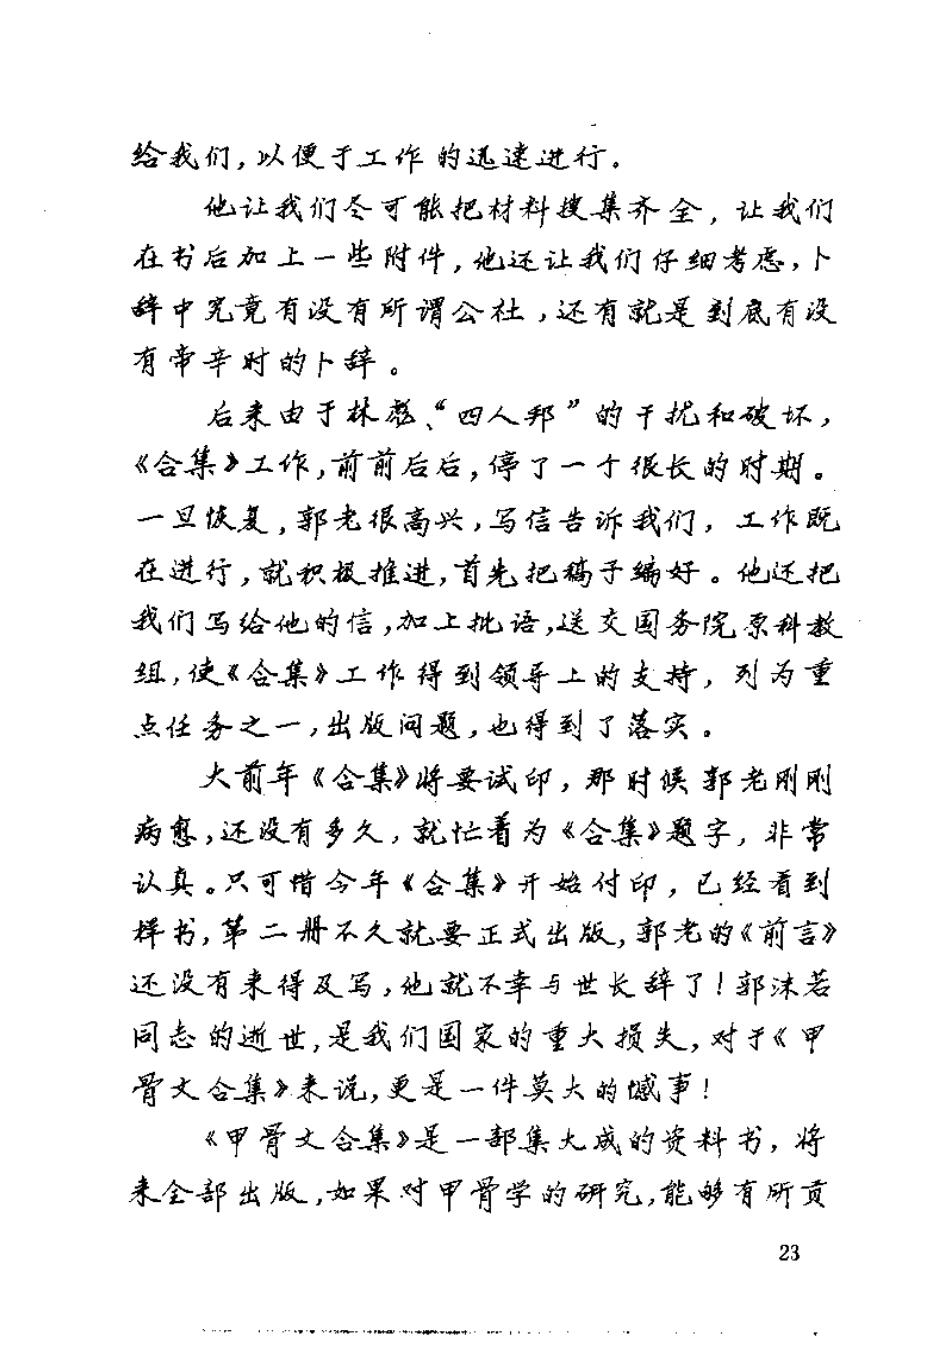 给我们,以便于工作的迅速进行。
他让我们尽可能把材料搜集齐全,让我们
在书后加上一些附件,他还让我们仔细考虑,卜
辞中究竟有没有所谓公社,还有就是到底有没
有帝辛时的卜辞。
后来由于林彪、“四人邦”的干扰和破坏,
《合集》工作,前前后后,停了一个很长的时期。
一旦恢复,郭老很高兴,写信告诉我们,工作既
在进行,就积极推进,首先把稿子编好。他还把
我们写给他的信,加上批语,送交国务院原科教
组,使《合集》工作得到领导上的支持,列为重
点任务之一,出版问题,也得到了落实。
大前年《合集》将要试印,那时候郭老刚刚
病愈,还没有多久,就忙着为《合集》题字,非常
认真。只可惜今年《合集》开始付印,已经看到
样书,第二册不久就要正式出版,郭老的《前言》
还没有来得及写,他就不幸与世长辞了!郭沫若
同志的逝世,是我们国家的重大损失,对于《甲
骨文合集》来说,更是一件莫大的憾事!
《甲骨文合集》是一部集大成的资料书,将
来全部出版,如果对甲骨学的研究,能够有所贡
23